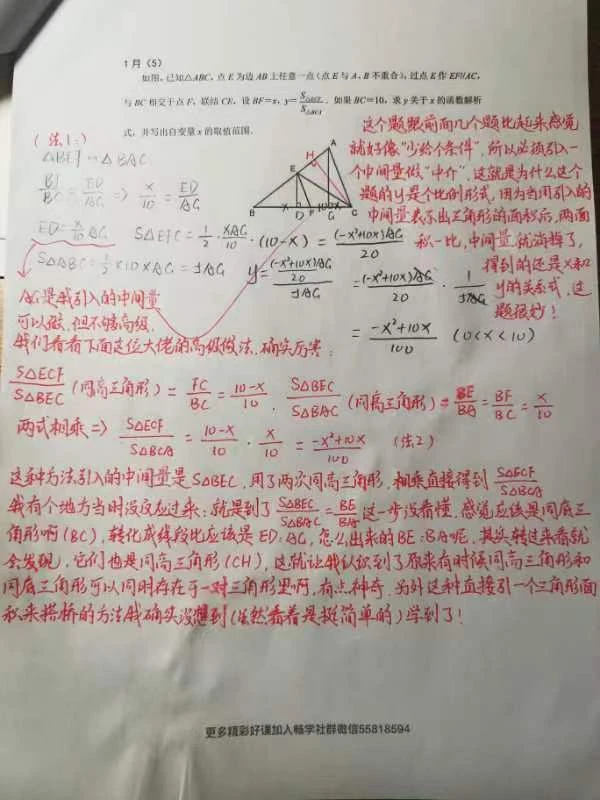 1月（5）
如图，已知△ABC，点E为边AB上任意一点（点E与A、B不重合），过点E作EF//AC，
与BC相交于点F，联结CE，设BF=x，y=S△ECF/S△BCA．如果BC=10，求y关于x的函数解析
式，并写出自变量x的取值范围．
(法1:)
△BEF∽△BAC
BF/BC = ED/AG => x/10 = ED/AG
ED=x/10 AG
S△EFC = 1/2 · xAG/10 · (10-x) = (-x²+10x)AG/20
S△ABC = 1/2 ×10×AG = 5AG
y = (-x²+10x)AG/20 / 5AG = (-x²+10x)AG/20 · 1/5AG
= -x²+10x/100 (0<x<10)
A
H
E
B
x
D
F
10-x
G
C
这个题跟前面几个题比起来感觉
就好像“少给个条件”，所以必须引入一
个中间量做“中介”，这就是为什么这个
题的y是个比例形式，因为当用引入的
中间量表示出三角形的面积后，两面
积一比，中间量就消掉了，
得到的还是x和
y的关系式，这
题很妙！
AG是我引入的中间量
可以做，但不够高级．
我们看看下面这位大佬的高级做法，确实厉害：
S△ECF/S△BEC (同高三角形) = FC/BC = 10-x/10 . S△BEC/S△BAC (同高三角形) = BE/BA = BF/BC = x/10
两式相乘 => S△ECF/S△BCA = 10-x/10 · x/10 = -x²+10x/100 (法2)
这种方法引入的中间量是S△BEC，用了两次同高三角形，相乘直接得到 S△ECF/S△BCA
我有个地方当时没反应过来：就是到了 S△BEC/S△BAC = BE/BA 这一步没看懂，感觉应该是同底三
角形啊(BC)，转化成线段比应该是ED:AG，怎么出来的BE:BA呢，其实转过来看就
会发现，它们也是同高三角形(CH)，这就让我认识到了原来有时候同高三角形和
同底三角形可以同时存在于一对三角形里啊，有点神奇，另外这种直接引一个三角形面
积来搭桥的方法我确实没想到(虽然看着是挺简单的)学到了！
更多精彩好课加入畅学社群微信55818594